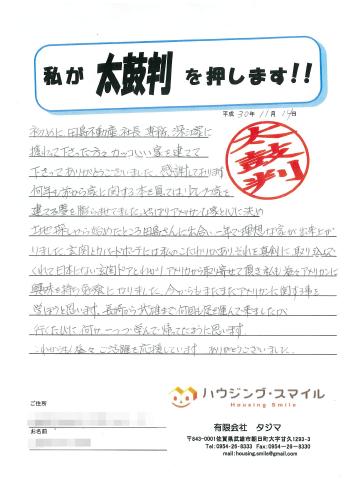 私が 太鼓判 を押します!!
平成 30年 11月 14日
太鼓判
初めに 田島不動産 社長 専務、深町様に
携わって下さった方々 カッコいい家を建てて
下さってありがとうございました。感謝しております
何年も前から家に関する本を見ては
建てる夢を膨らませてました。やっぱりアメリカンな家と心に決め
土地探しから始めたところ田島さんに出会い一年で理想の家が出来上が
りました。玄関と は私のこだわりがありそれを真剣に取り込んで
くれて日本にない玄関ドアとわかりアメリカから取り寄せて頂き私も益々アメリカンに
興味を持つ気持になりました。今からもまだまだアメリカンに関する事を
学ぼうと思います。長崎から武雄まで何回も足を運んで来ましたが
行くたびに何か一つづつ学んで帰ってたように思います。
これからも益々 ご活躍を応援しています ありがとうございました。
ハウジング・スマイル
Housing Smile
ご住所
お名前
有限会社 タジマ
〒843-0001佐賀県武雄市朝日町大字甘久1293-3
Tel:0954-26-8333 Fax:0954-26-8334
mail:housing.smile@gmail.com